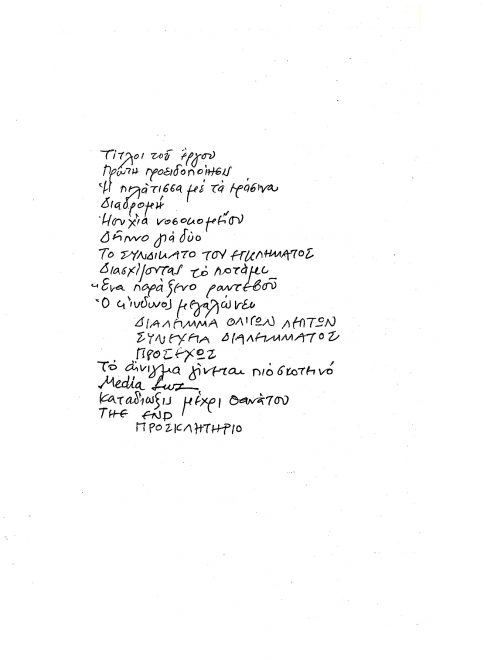 Τίτλοι τοῦ ἔργου
Πρώτη προειδοποίησις
Ἡ πελάτισσα μέ τά πράσινα
Διαδρομή
Ἡσυχία νοσοκομείου
Δεῖπνο γιά δύο
ΤΟ ΣΥΝΔΙΚΑΤΟ ΤΟΥ ΕΓΚΛΗΜΑΤΟΣ
Διασχίζοντας τό ποτάμι
Ἕνα παράξενο ραντεβοῦ
Ὁ κίνδυνος μεγαλώνει
ΔΙΑΛΕΙΜΜΑ ΟΛΙΓΩΝ ΛΕΠΤΩΝ
ΣΥΝΕΧΕΙΑ ΔΙΑΛΕΙΜΜΑΤΟΣ
ΠΡΟΣΕΧΩΣ
Τό αἴνιγμα γίνεται πιό σκοτεινό
Media Luz
Καταδίωξις μέχρι θανάτου
THE END
ΠΡΟΣΚΛΗΤΗΡΙΟ